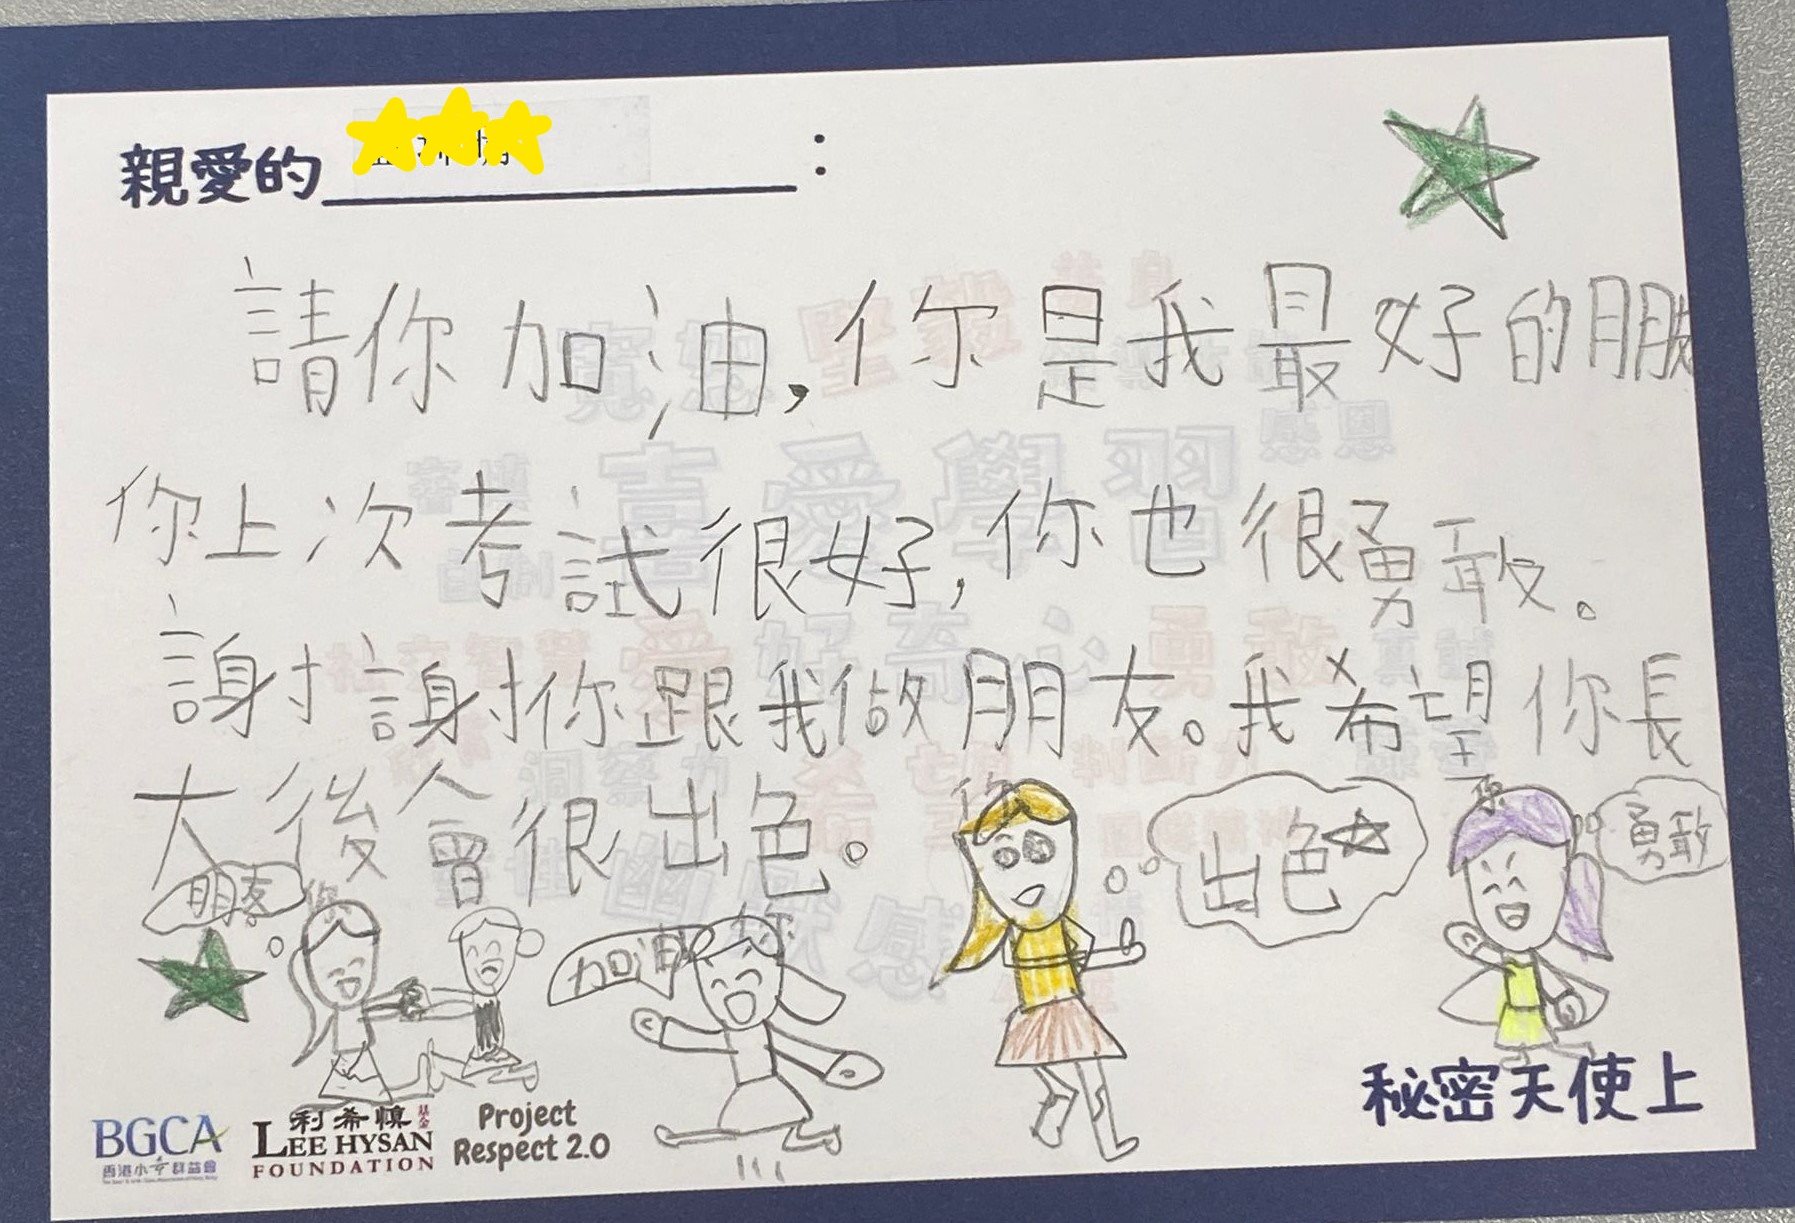 親愛的 :
請你加油,你是我最好的朋友
你上次考試很好,你也很勇敢。
謝謝你跟我做朋友。我希望你長
大後會很出色。
朋友
你
加油
你
你
出色
你
勇敢
秘密天使上
BGCA
香港小童群益會
利希慎基金
LEE HYSAN
FOUNDATION
Project
Respect 2.0